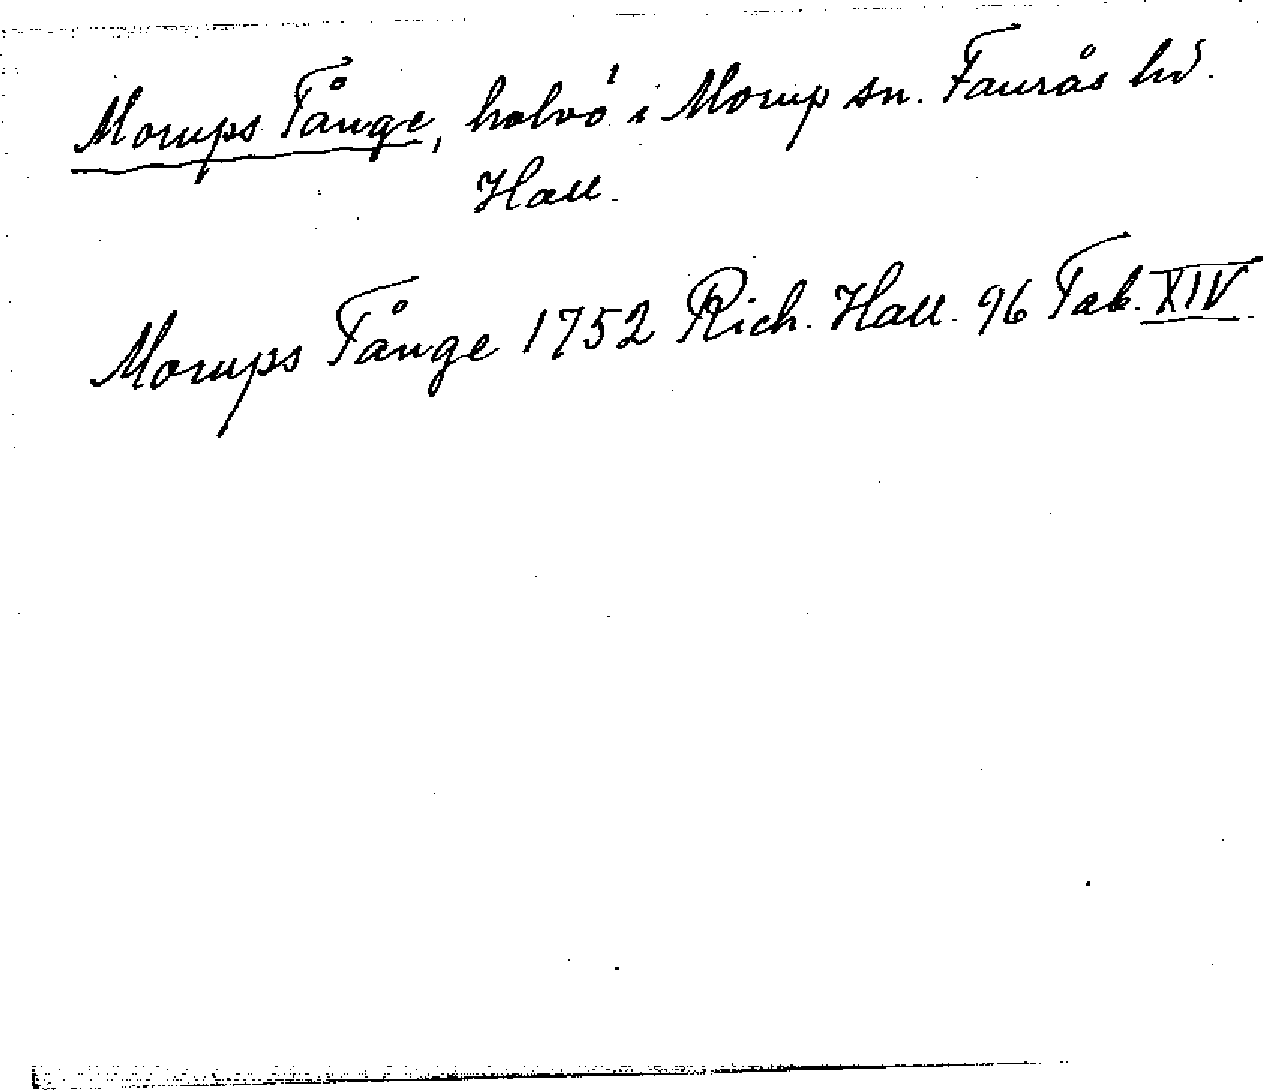 Morups Tånge, halvö i Morup sn. Faurås hd.
Hall.
Morups Tånge 1752 Rich. Hall. 96 Tab. XIV